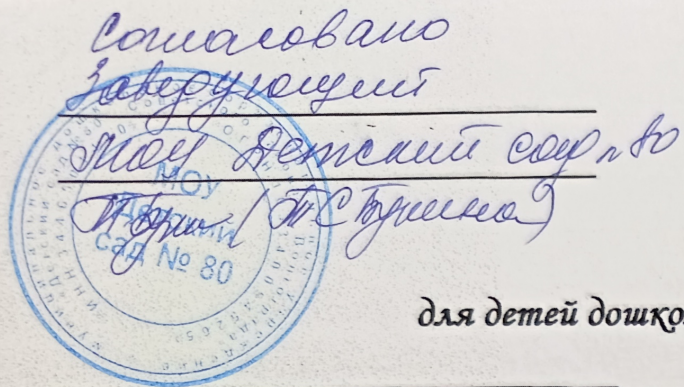 Согласовано
Заведующий
МОУ Детский сад № 80
(Т С Бунина)
МОУ
Детский
сад № 80
для детей дошко